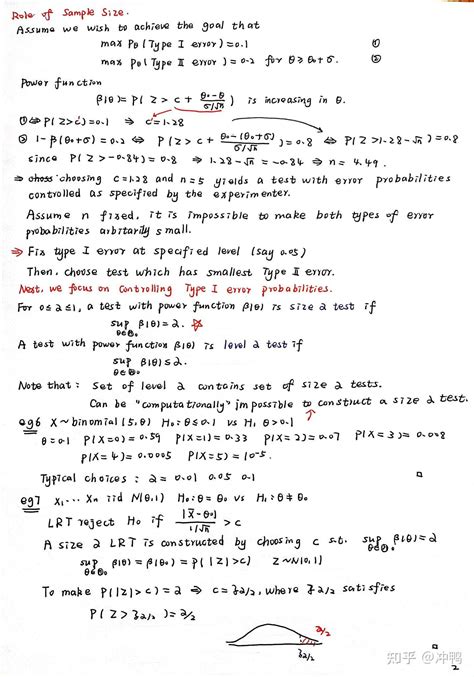 Role of Sample Size.
Assume we wish to achieve the goal that
max Pθ(Type I error) = 0.1 ①
max Pθ(Type II error) = 0.2 for θ ≥ θ₀+σ. ②
Power function
β(θ) = P( Z > c + (θ₀-θ)/(σ/√n) ) is increasing in θ.
① ⇔ P(Z > c) = 0.1 ⇒ c = 1.28
② 1-β(θ₀+σ) = 0.2 ⇔ P( Z > c + (θ₀-(θ₀+σ))/(σ/√n) ) = 0.8 ⇔ P(Z > 1.28 - √n) = 0.8
since P(Z > -0.84) = 0.8 ⇒ 1.28 - √n = -0.84 ⇒ n = 4.49.
⇒ choosing c = 1.28 and n = 5 yields a test with error probabilities
controlled as specified by the experimenter.
Assume n fixed, it is impossible to make both types of error
probabilities arbitarily small.
⇒ Fix type I error at specified level (say 0.05)
Then, choose test which has smallest Type II error.
Next, we focus on controlling Type I error probabilities.
For 0 ≤ α ≤ 1, a test with power function β(θ) is size α test if
sup θ∈Θ₀ β(θ) = α.
A test with power function β(θ) is level α test if
sup θ∈Θ₀ β(θ) ≤ α.
Note that: Set of level α contains set of size α tests.
Can be "computationally" impossible to construct a size α test.
eg6 X ~ binomial (5, θ) H₀: θ ≤ 0.1 vs H₁ θ > 0.1
θ = 0.1 P(X=0) = 0.59 P(X=1) = 0.33 P(X=2) = 0.07 P(X=3) = 0.008
P(X=4) = 0.0005 P(X=5) = 10⁻⁵.
Typical choices: α = 0.01 0.05 0.1
eg7 X₁ ... Xn iid N(θ,1) H₀: θ = θ₀ vs H₁: θ ≠ θ₀
LRT reject H₀ if |X̄-θ₀|/(1/√n) > c
A size α LRT is constructed by choosing c s.t. sup θ∈Θ₀ β(θ) = α
sup θ∈Θ₀ β(θ) = β(θ₀) = P(|Z| > c) Z ~ N(0,1)
To make P(|Z| > c) = α ⇒ c = z α/2, where z α/2 satisfies
P(Z > z α/2) = α/2
α/2
z α/2
知乎 @冲鸭
2